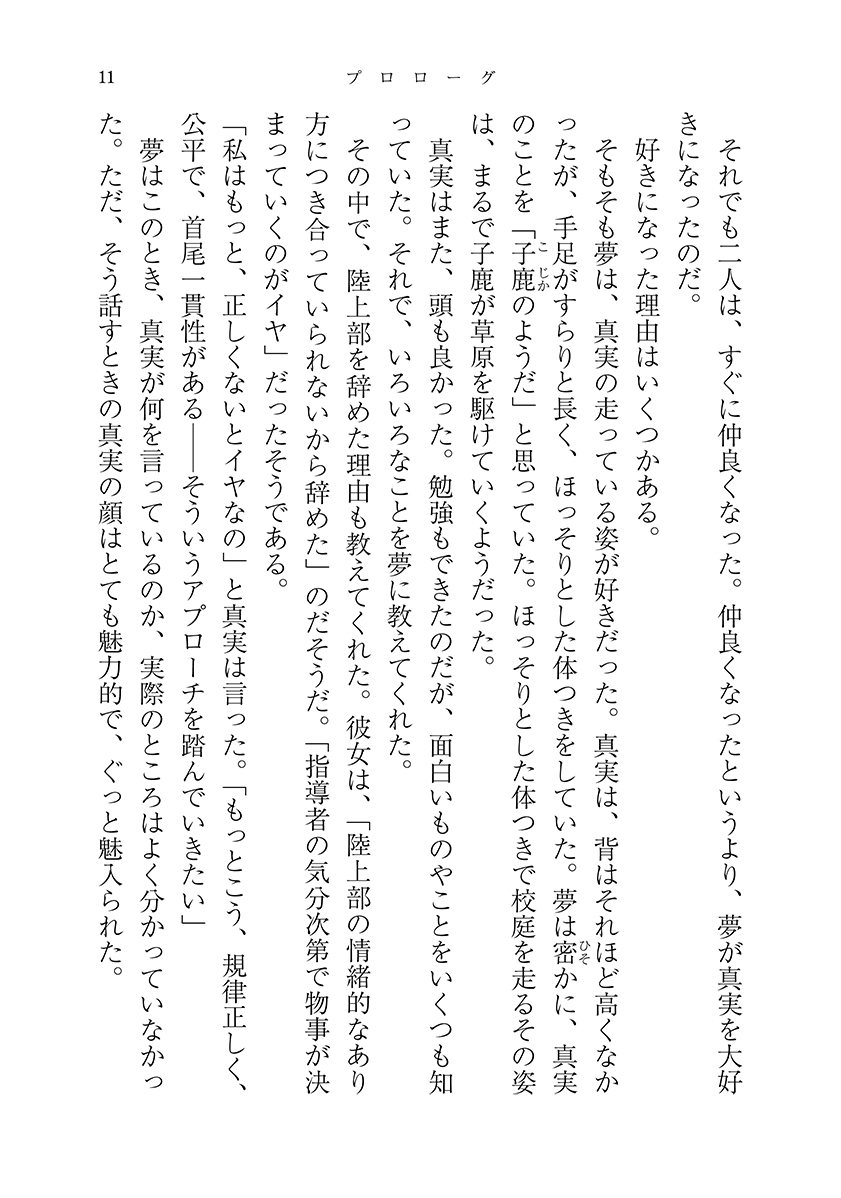 11
プロローグ
　それでも二人は、すぐに仲良くなった。仲良くなったというより、夢が真実を大好
きになったのだ。
　好きになった理由はいくつかある。
　そもそも夢は、真実の走っている姿が好きだった。真実は、背はそれほど高くなか
ったが、手足がすらりと長く、ほっそりとした体つきをしていた。夢は密かに、真実
のことを「子鹿のようだ」と思っていた。ほっそりとした体つきで校庭を走るその姿
は、まるで子鹿が草原を駆けていくようだった。
　真実はまた、頭も良かった。勉強もできたのだが、面白いものやことをいくつも知
っていた。それで、いろいろなことを夢に教えてくれた。
　その中で、陸上部を辞めた理由も教えてくれた。彼女は、「陸上部の情緒的なあり
方につき合っていられないから辞めた」のだそうだ。「指導者の気分次第で物事が決
まっていくのがイヤ」だったそうである。
「私はもっと、正しくないとイヤなの」と真実は言った。「もっとこう、規律正しく、
公平で、首尾一貫性がある――そういうアプローチを踏んでいきたい」
　夢はこのとき、真実が何を言っているのか、実際のところはよく分かっていなかっ
た。ただ、そう話すときの真実の顔はとても魅力的で、ぐっと魅入られた。